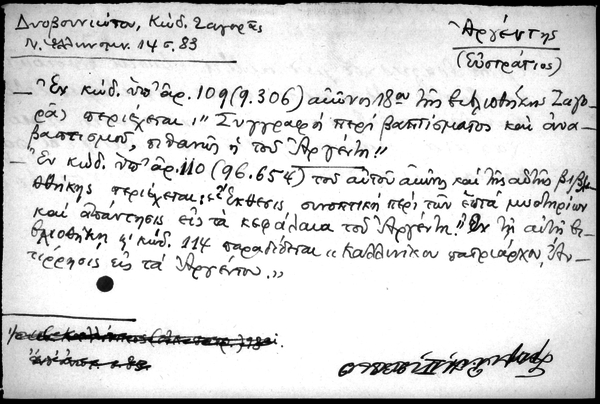 Δυοβουνιώτου, Κώδ. Ζαγορᾶς
Ν. Ἑλληνομν. 14 σ. 83
Ἀργέντης
(Εὐστράτιος)
— Ἐν κώδ. ὑπ' ἀρ. 109 (9.306) αἰῶνος 18ου τῆς βιβλιοθήκης Ζαγο-
ρᾶς περιέχεται „Συγγραφή περί βαπτίσματος καὶ ἀνα-
βαπτισμοῦ, πιθανῶς ἡ τοῦ Ἀργέντη."
— Ἐν κώδ. ὑπ' ἀρ. 110 (96.654) τοῦ αὐτοῦ αἰῶνος καὶ τῆς αὐτῆς βιβλιο-
θήκης περιέχεται: „Ἔκθεσις συνοπτική περί τῶν ἑπτά μυστηρίων
καί ἀπάντησις εἰς τὰ κεφάλαια τοῦ Ἀργέντη." Ἐν τῇ αὐτῇ βι-
βλιοθήκῃ κώδ. 114 παραδίδεται „Καλλινίκου πατριάρχου, Ἀν-
τίρρησις εἰς τά Ἀργέντου."